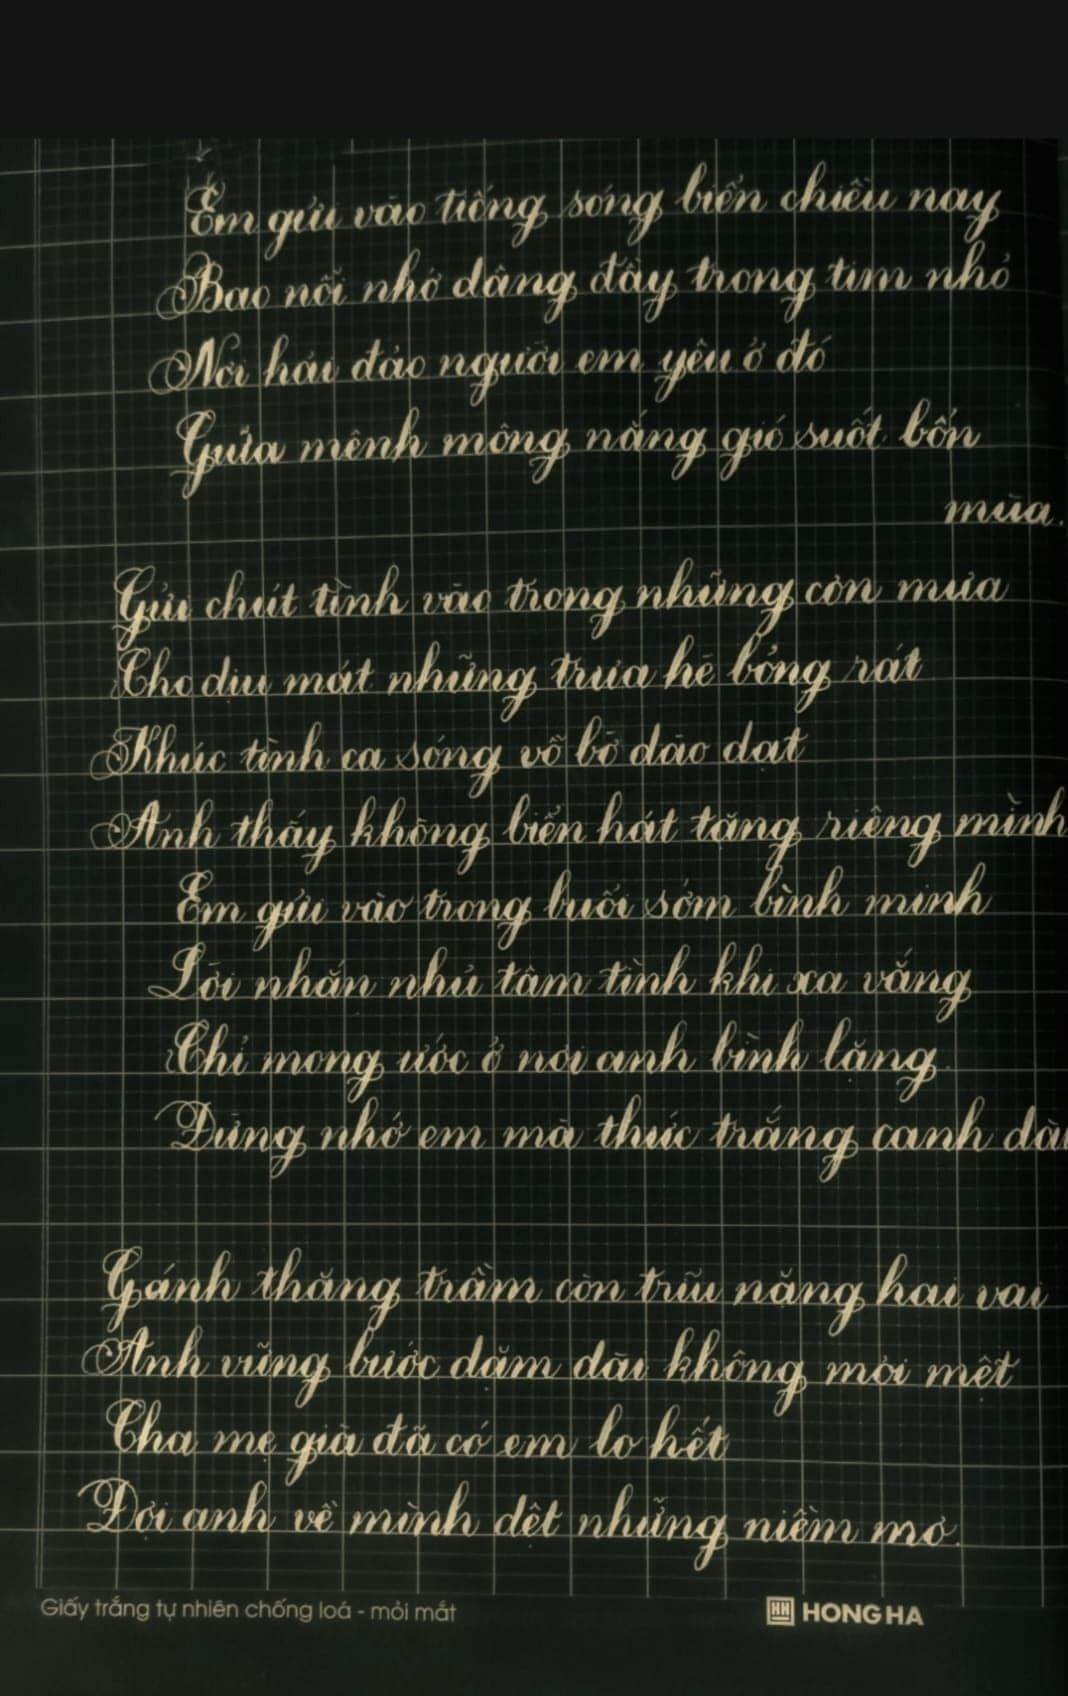 Em gửi vào tiếng sóng biển chiều nay
Bao nỗi nhớ dâng đầy trong tim nhỏ
Nơi hải đảo người em yêu ở đó
Giữa mênh mông nắng gió suốt bốn
mùa.
Gửi chút tình vào trong những cơn mưa
Cho dịu mát những trưa hè bỏng rát
Khúc tình ca sóng vỗ bờ dào dạt
Anh thấy không biển hát tặng riêng mình
Em gửi vào trong buổi sớm bình minh
Lời nhắn nhủ tâm tình khi xa vắng
Chỉ mong ước ở nơi anh bình lặng
Đừng nhớ em mà thức trắng canh dài
Gánh thăng trầm còn trĩu nặng hai vai
Anh vững bước dặm dài không mỏi mệt
Cha mẹ già đã có em lo hết
Đợi anh về mình dệt những niềm mơ.
Giấy trắng tự nhiên chống loá - mỏi mắt
HH HONG HA